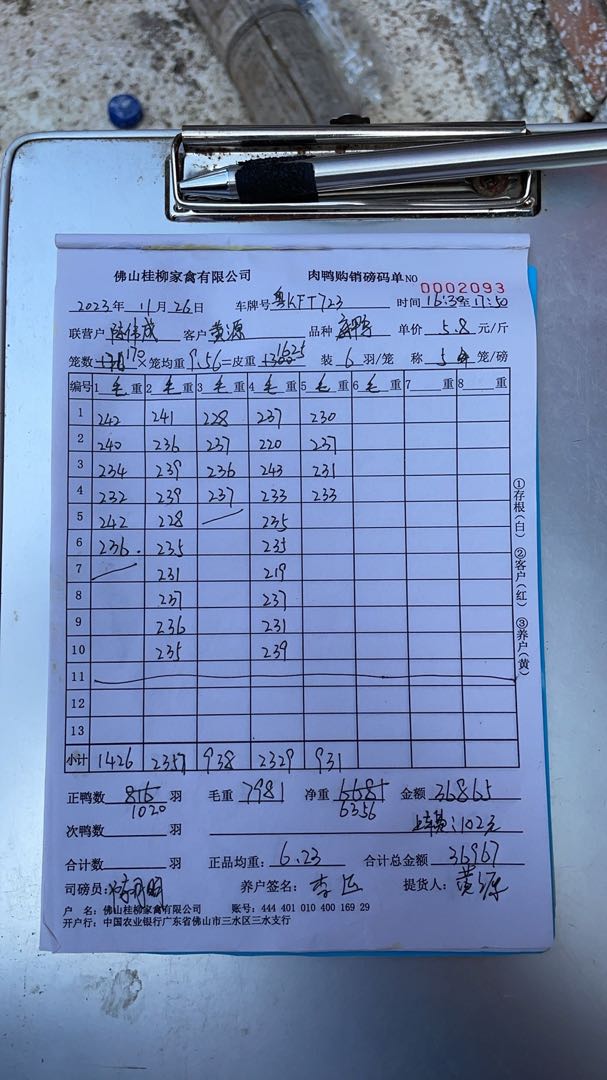 佛山桂柳家禽有限公司 肉鸭购销磅码单 NO 0002093
2023年 11月 26日 车牌号 粤KFT723 时间 16:30至17:50
联营户 客户 黄源 品种 单价 5.8 元/斤
笼数 170 ×笼均重 9.56=皮重 1625 装 6 羽/笼 称 5 笼/磅
编号 1 毛 重 2 毛 重 3 毛 重 4 毛 重 5 毛 重 6 毛 重 7 重 8 重
1 242 241 228 237 230
2 240 236 237 220 237
3 234 239 236 243 231
4 232 239 237 233 233
5 242 228 235
6 236. 235 235
7 231 219
8 237 237
9 236 231
10 235 239
11
12
13
小计 1426 2357 938 2329 931
正鸭数 816 羽 毛重 7981 净重 6681 金额 36865
1020 6356
次鸭数 羽 上车费:102元
合计数 羽 正品均重: 6.23 合计总金额 36967
司磅员: 养户签名: 提货人: 黄源
户 名:佛山桂柳家禽有限公司 账号: 444 401 010 400 169 29
开户行: 中国农业银行广东省佛山市三水区三水支行
①存根(白) ②客户(红) ③养户(黄)